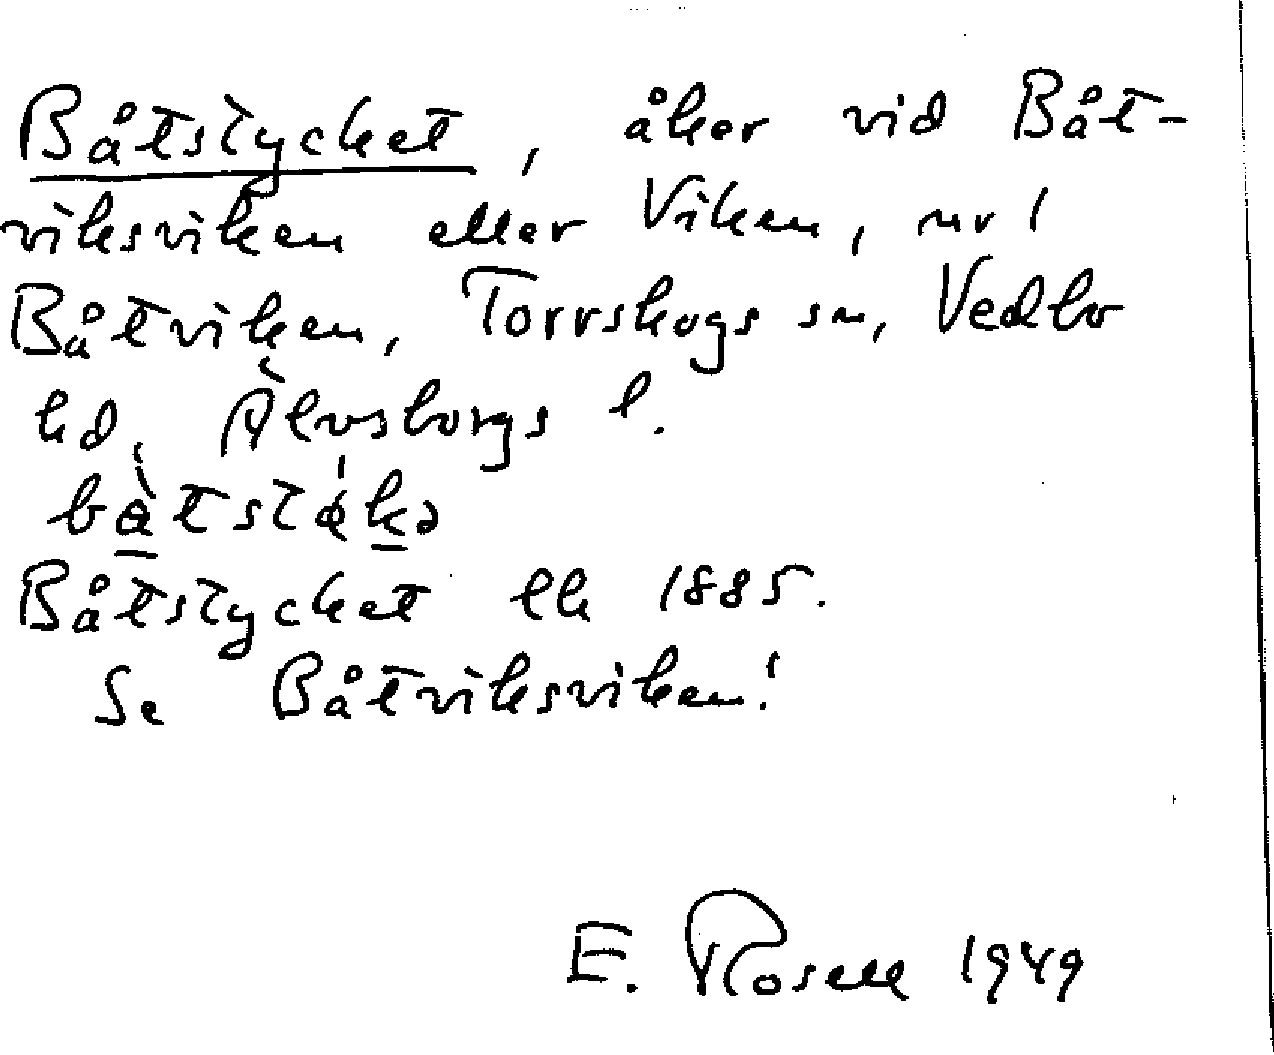 Båtstycket, åker vid Båt-
viksviken eller Viken, nr 1
Båtviken, Torrskogs sn, Vedbo
hd, Älvsborgs l.
Båtstycket elk 1885.
Se Båtviksviken!
E. Rosell 1949